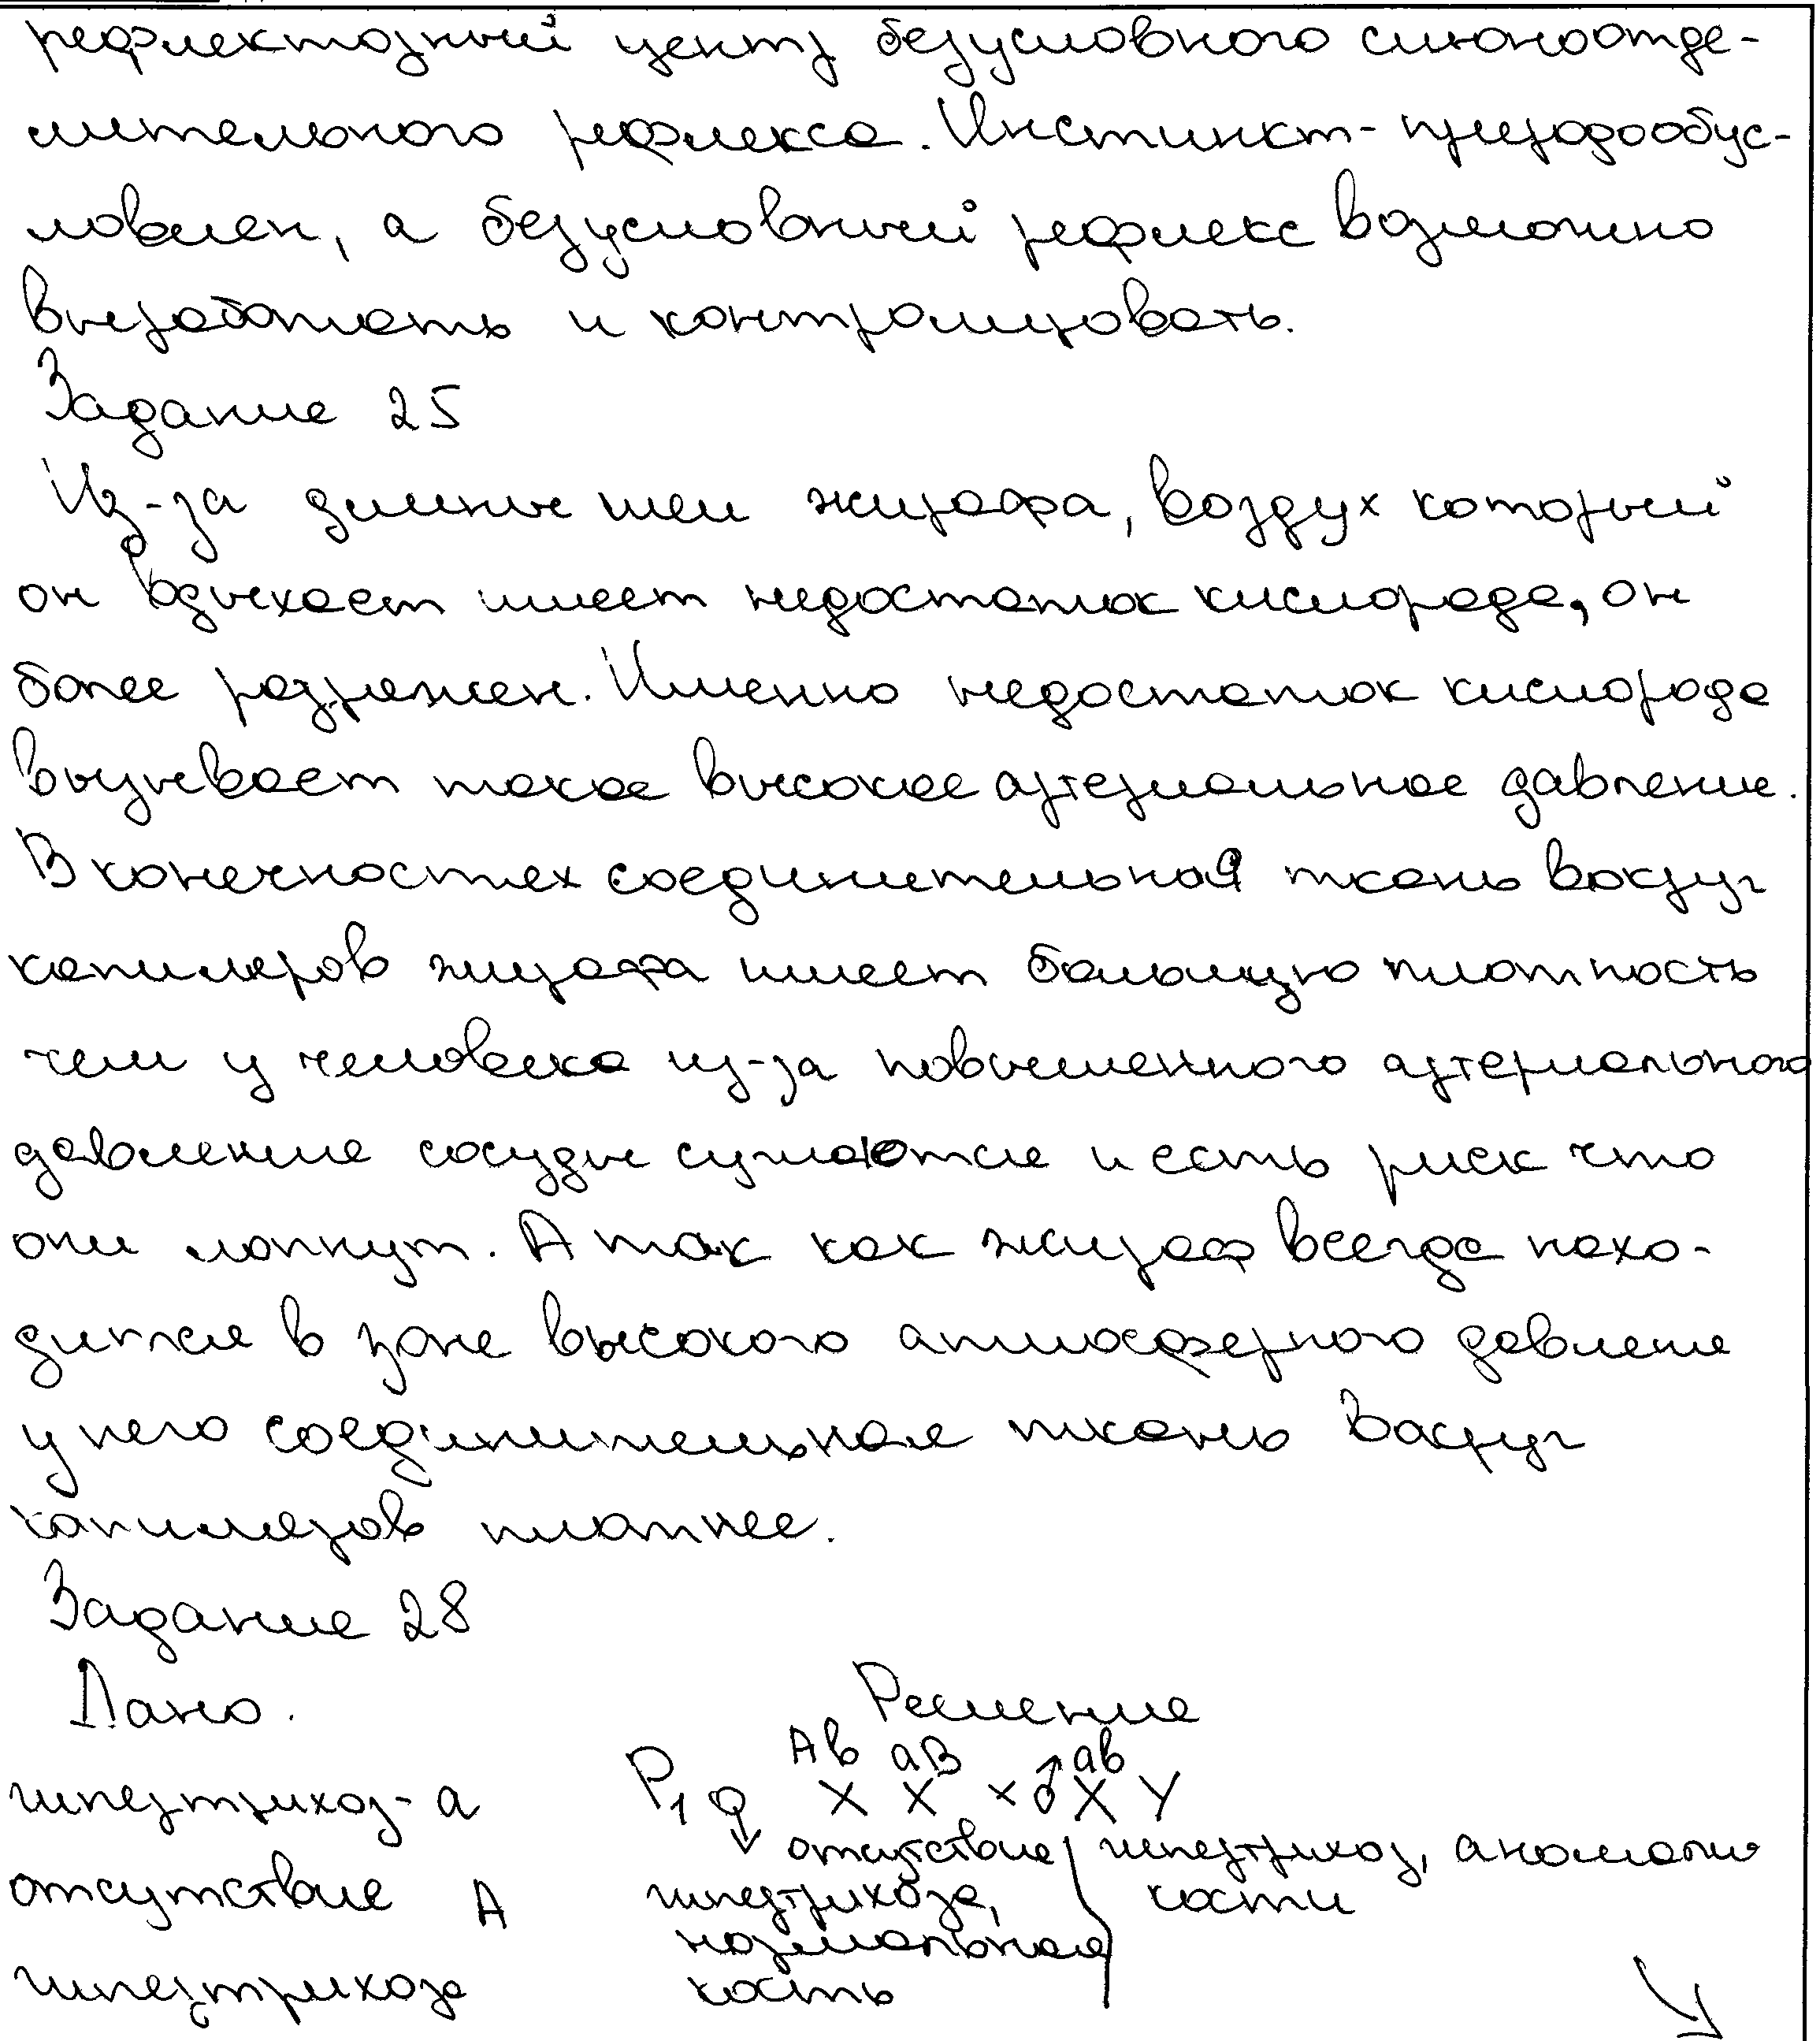 рефлекторный центр безусловного слюноотде-
лительного рефлекса. Инстинкт- природообус-
ловлен, а безусловный рефлекс возможно
выработать и контролировать.
Задание 25
Из-за длинные шеи жирафа, воздух который
он вдыхает имеет недостаток кислорода, он
более разряжен. Именно недостаток кислорода
вызывает такое высокое артериальное давление.
В конечностях соединительная ткань вокруг
капиляров жирафа имеет большую плотность
чем у человека из-за повышенного артериального
давление сосуды сужаются и есть риск что
они лопнут. А так как жираф всегда нахо-
дится в зоне высокого атмосферного давление
у него соединительная ткань вокруг
капиляров плотнее.
Задание 28
Дано. Решение
гипертрихоз- а P₁ ♀ XᴬᵇXᵃᴮ × ♂ XᵃᵇY
↓ отсутствие гипертрихоз, аномалия
отсутствие А гипертрихоза, кости
нормальная
гипертрихоза кость